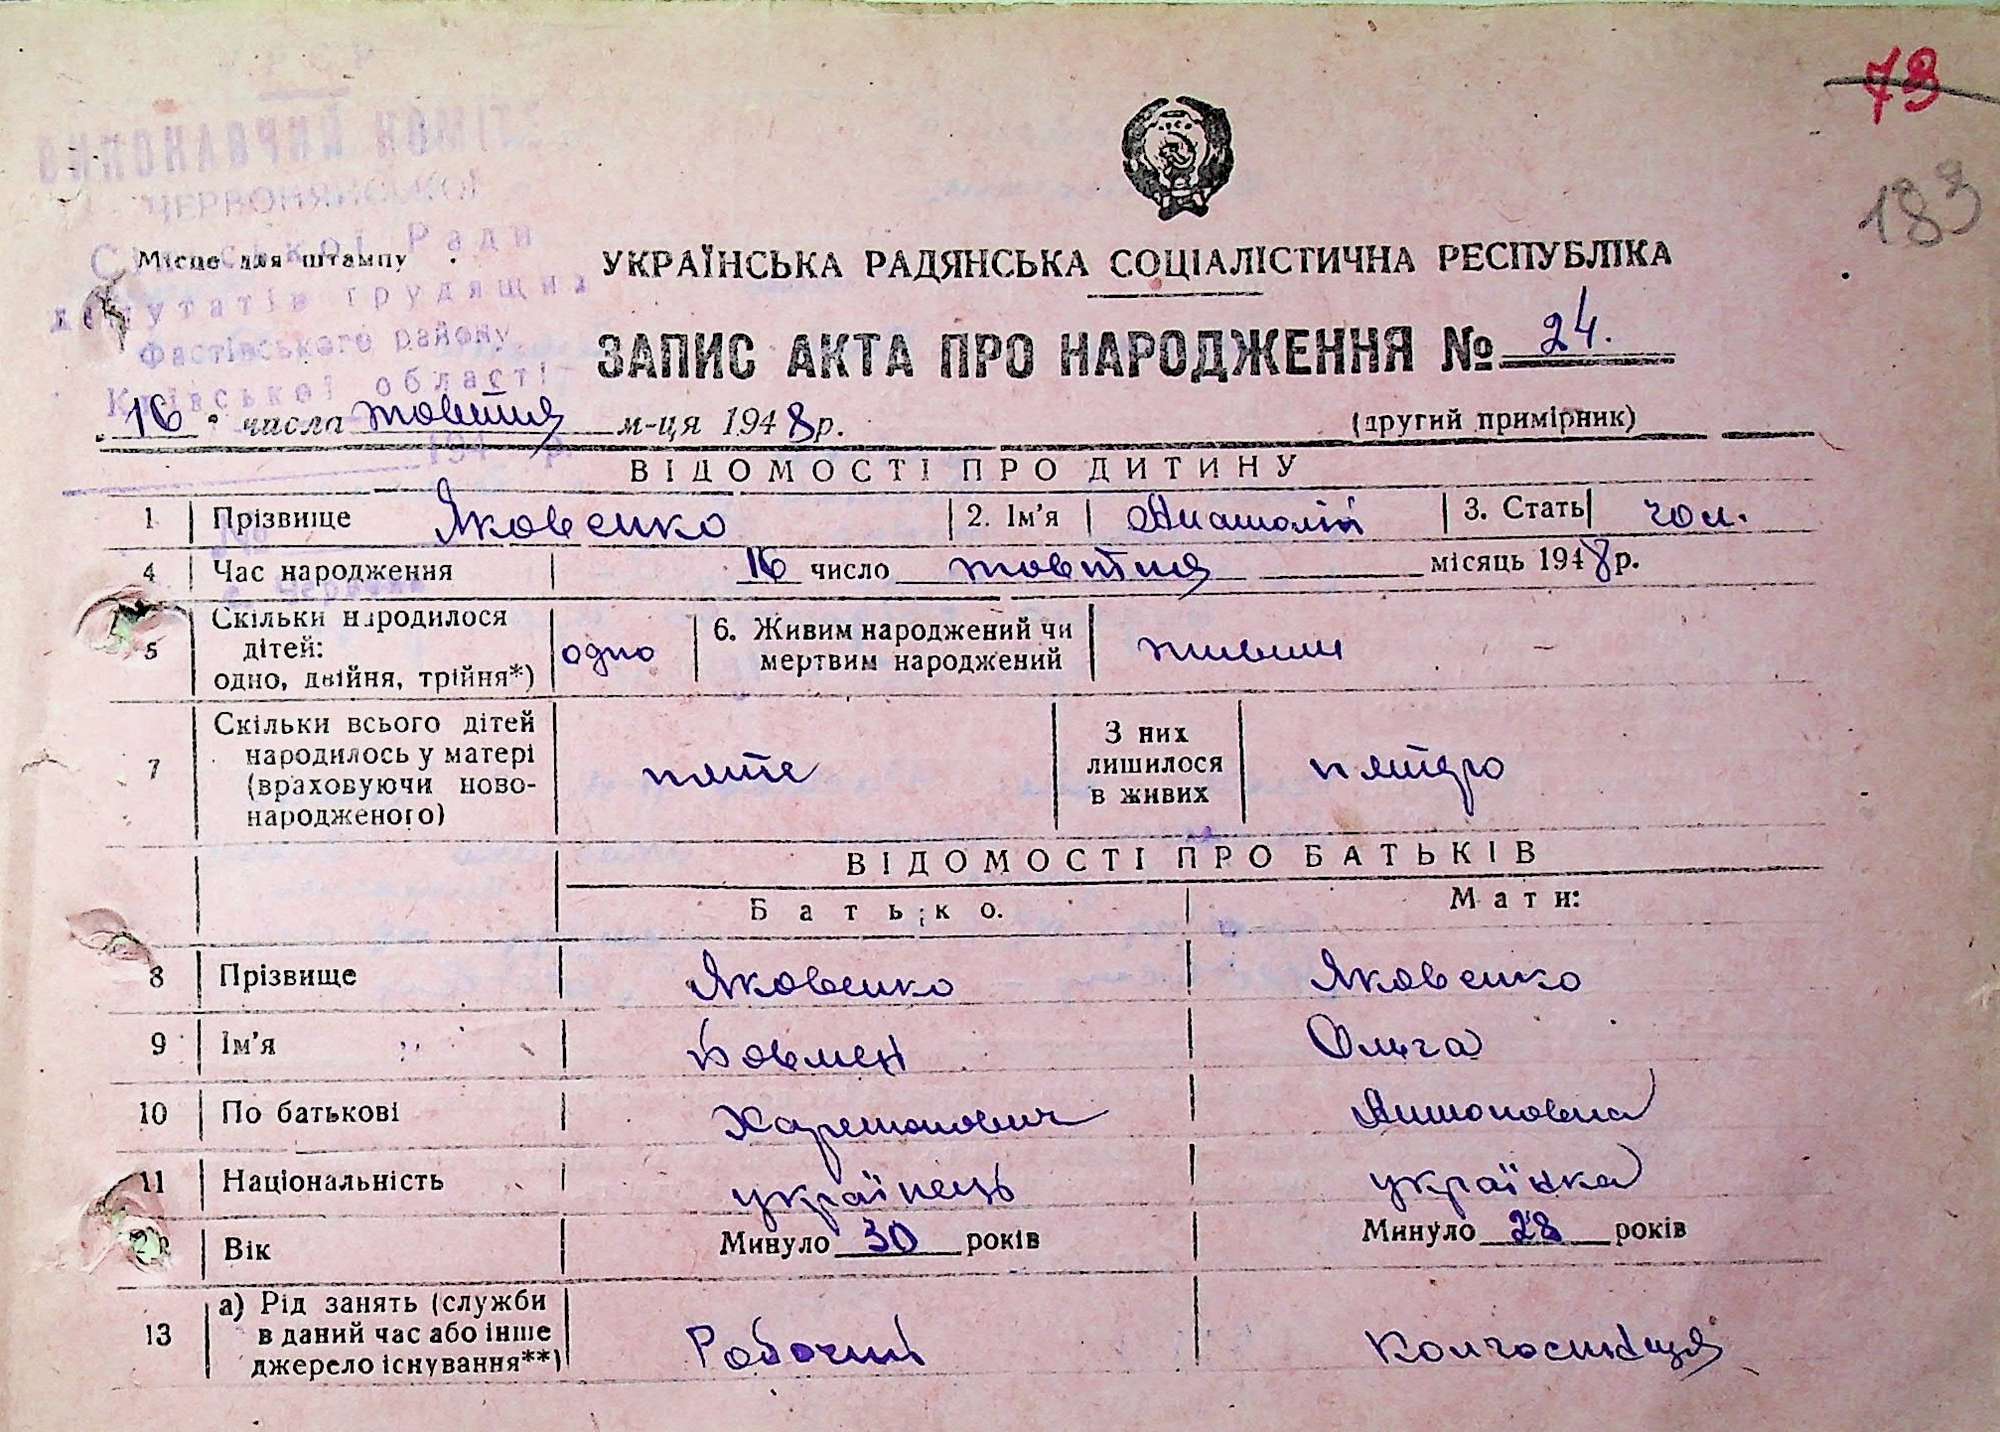 73
183
УРСР
ВИКОНАВЧИЙ КОМІТЕТ
ЧЕРВОНЯНСЬКОЇ
Сільської Ради
депутатів трудящих
Фастівського району
Київської області
194 р.
№
с. Червоне
Місце для штампу
УКРАЇНСЬКА РАДЯНСЬКА СОЦІАЛІСТИЧНА РЕСПУБЛІКА
ЗАПИС АКТА ПРО НАРОДЖЕННЯ № 24.
16 числа жовтня м-ця 1948 р. (другий примірник)
ВІДОМОСТІ ПРО ДИТИНУ
1 Прізвище Яковенко 2. Ім'я Анатолій 3. Стать чол.
4 Час народження 16 число жовтня місяць 1948 р.
5 Скільки народилося дітей: одно, двійня, трійня*) одно 6. Живим народжений чи мертвим народжений живим
7 Скільки всього дітей народилось у матері (враховуючи ново-народженого) пяте З них лишилося в живих пятеро
ВІДОМОСТІ ПРО БАТЬКІВ
Батько. Мати:
8 Прізвище Яковенко Яковенко
9 Ім'я Ольга
10 По батькові Харитонович Антоновна
11 Національність українець українка
12 Вік Минуло 30 років Минуло 28 років
13 а) Рід занять (служби в даний час або інше джерело існування**) Робочий Колгоспниця